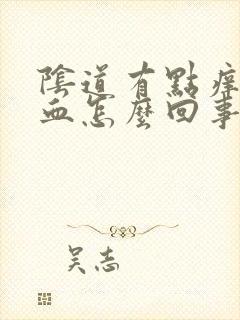 陰道有點痒
血怎麼回事
吴志